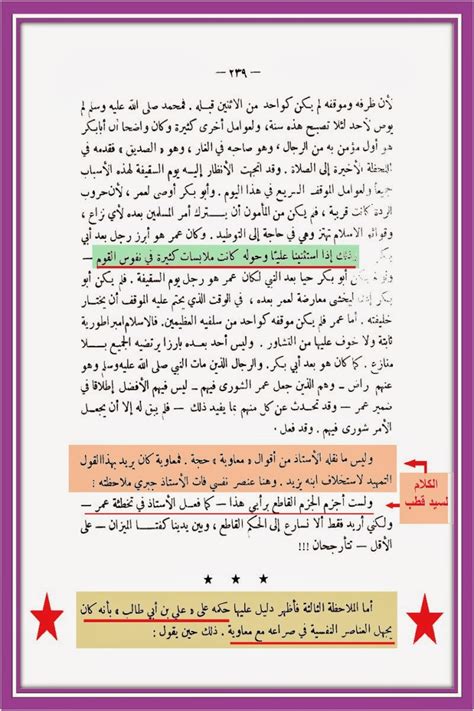 — ٢٣٩ —
لأن ظرفه وموقفه لم يكن كواحد من الاثنين قبله . فمحمد صلى الله عليه وسلم لم
يوص لأحد لئلا تصبح هذه سنة، ولعوامل أخرى كثيرة وكان واضحا أن أبا بكر
هو أول مؤمن به من الرجال ، وهو صاحبه في الغار ، وهو « الصديق » فقدمه في
اللحظة الأخيرة إلى الصلاة . وقد اتجهت الأنظار إليه يوم السقيفة لهذه الأسباب
جميعا ولعوامل الموقف السريع في هذا اليوم . وأبو بكر أوصى لعمر ، لأن حروب
الردة كانت قريبة ، فلم يكن من المأمون أن يترك أمر المسلمين بعده لأي نزاع ،
وقوائم الاسلام تهتز وهي في حاجة إلى التوطيد . وكان عمر هو أبرز رجل بعد أبي
بكر وذلك إذا استثنينا عليًا وحوله كانت ملابسات كثيرة في نفوس القوم
— ولو لم يكن أبو بكر حيا بعد النبي لكان عمر هو رجل يوم السقيفة . ولم يكن أبو
بكر إذا ليخشى معارضة لعمر بعده ، في الوقت الذي يحتم عليه الموقف أن يختار
خليفته . أما عمر فلم يكن موقفه كواحد من سلفيه العظيمين. فالاسلام امبراطورية
ثابتة ولا خوف عليها من التشاور . وليس أحد بعده بارزا يرتضيه الجميع بلا
منازع . كما كان هو بعد أبي بكر . والرجال الذين مات النبي صلى الله عليه وسلم وهو
عنهم راض — وهم الذين جعل عمر الشورى فيهم — ليس فيهم الأفضل إطلاقا في
ضمير عمر — وقد تحدث عن كل منهم بما يفيد ذلك — فلم يبق له إلا أن يجعل
الأمر شورى فيهم . وقد فعل .
وليس ما نقله الأستاذ من أقوال « معاوية » حجة . فمعاوية كان يريد بهذا القول
التمهيد لاستخلاف ابنه يزيد . وهنا عنصر نفسي فات الأستاذ جبري ملاحظته :
الكلام
لسيد قطب
ولست أجزم الجزم القاطع برأيي هذا — كما فعل الأستاذ في تخطئة عمر —
ولكني أريد فقط ألا نسارع إلى الحكم القاطع ، وبين يدينا كفتا الميزان — على
الأقل — تتأرجحان !!!
★ ★ ★
أما الملاحظة الثالثة فأظهر دليل عليها حكمه على « علي بن أبي طالب » بأنه كان
يجهل العناصر النفسية في صراعه مع معاوية . ذلك حين يقول :